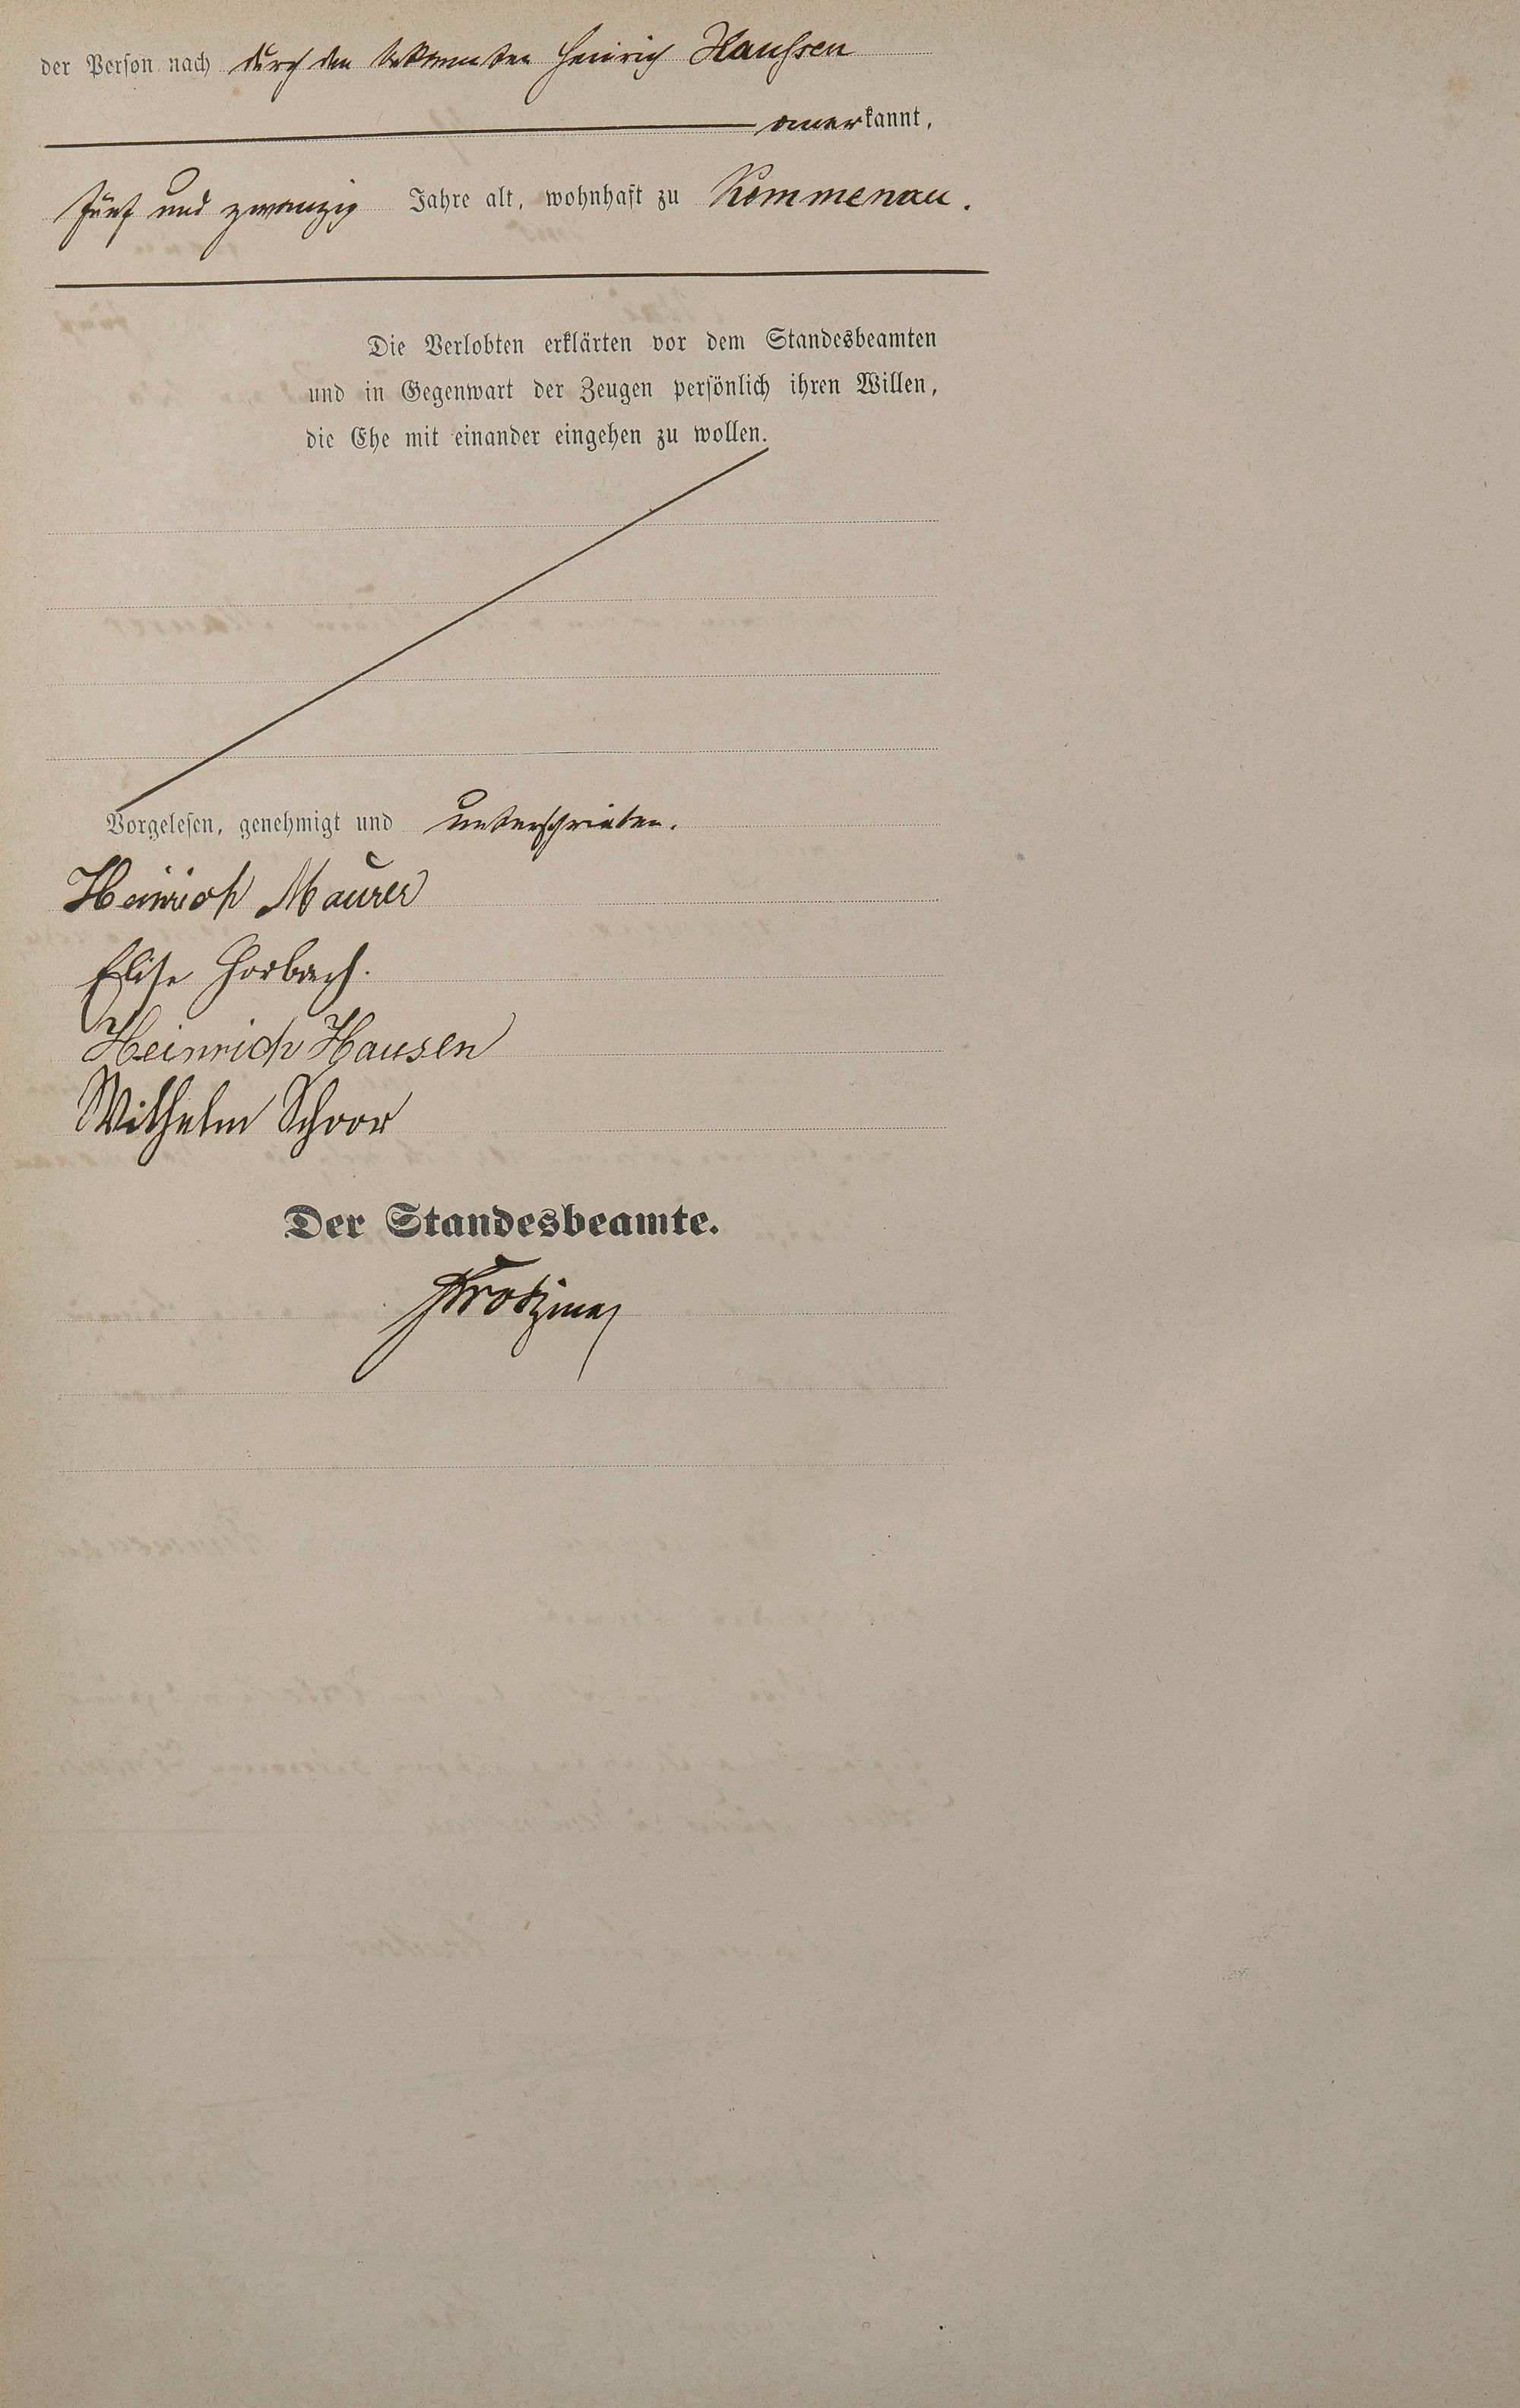 der Person nach durch den bekannten Heinrich Haußen
anerkannt,
fünf und zwanzig Jahre alt, wohnhaft zu Kemmenau.
Die Verlobten erklärten vor dem Standesbeamten
und in Gegenwart der Zeugen persönlich ihren Willen,
die Ehe mit einander eingehen zu wollen.
Vorgelesen, genehmigt und unterschrieben.
Heinrich Maurer
Elise Horbach.
Heinrich Hausen
Wilhelm Schoor
Der Standesbeamte.